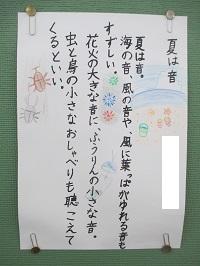 夏は音
夏は音。
海の音、風の音や、風に葉っぱがゆれる音も
すずしい。
花火の大きな音に、ふうりんの小さな音。
虫と鳥の小さなおしゃべりも聴こえて
くるといい。